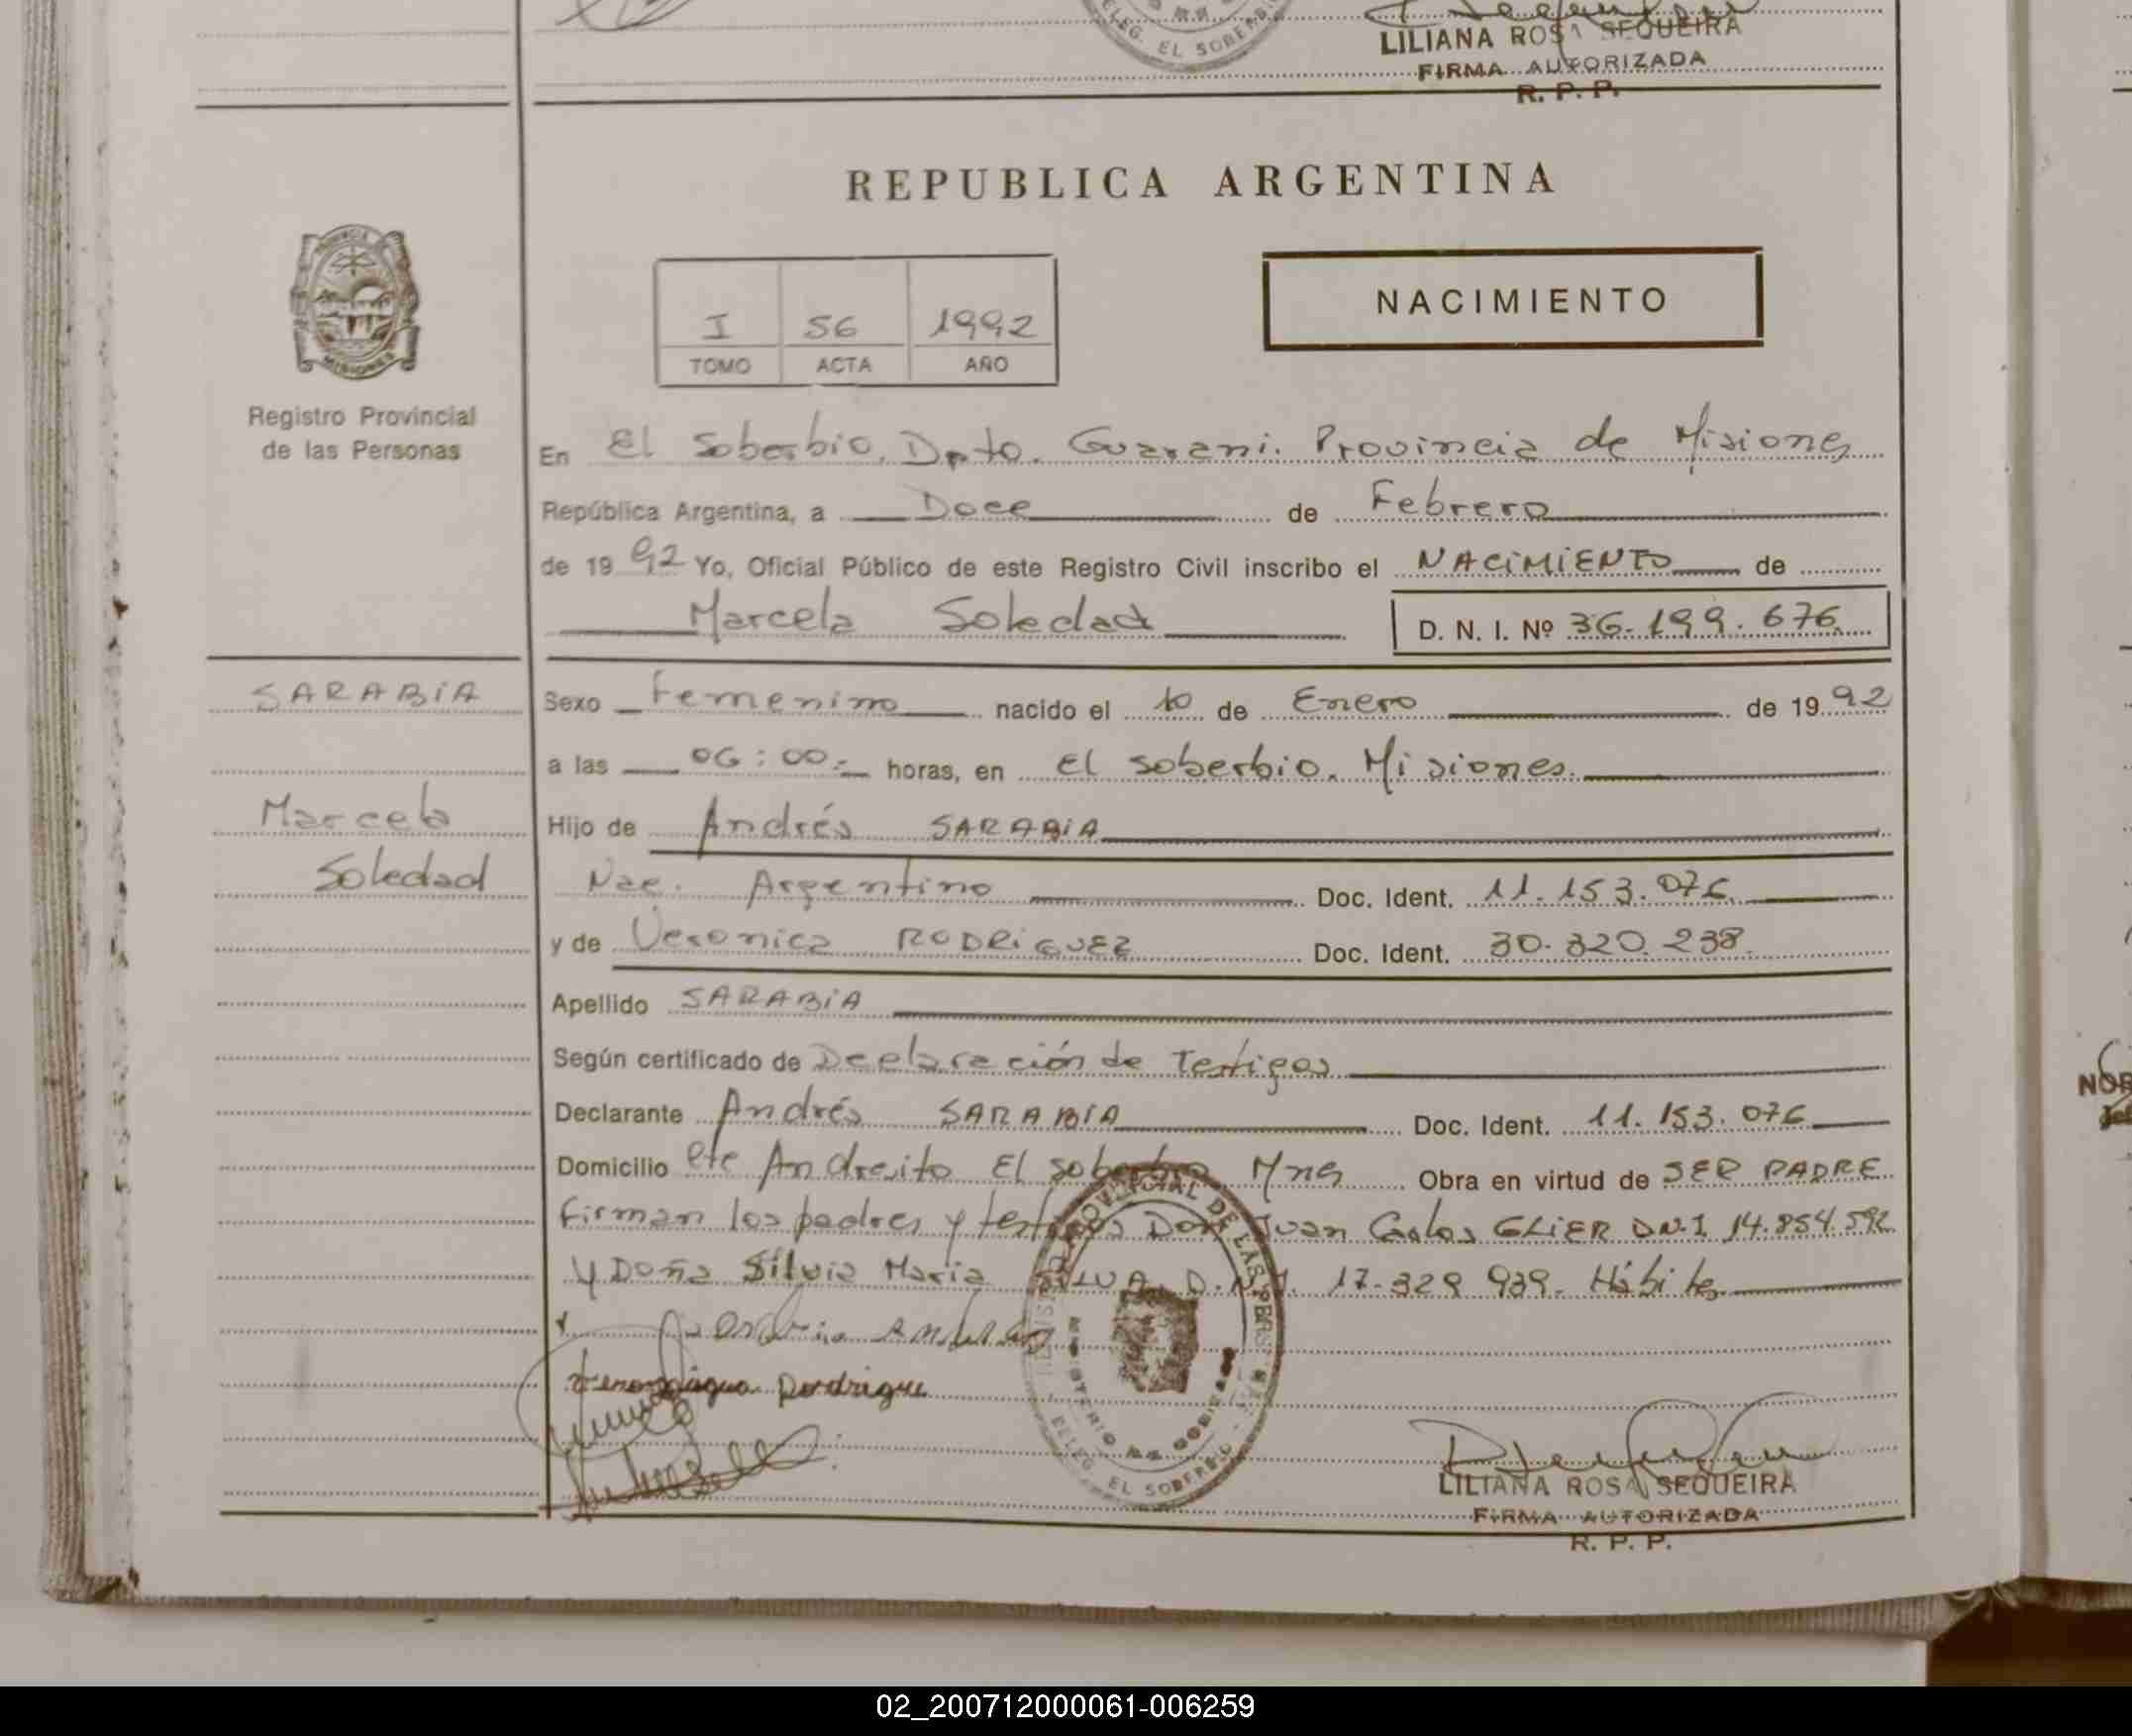 DELEG. EL SOBERBIO
LILIANA ROSA SEQUEIRA
FIRMA AUTORIZADA
R. P. P.
REPUBLICA ARGENTINA
I 56 1992
TOMO ACTA AÑO
NACIMIENTO
MISIONES
Registro Provincial
de las Personas
En El Soberbio, Dpto. Guarani. Provincia de Misiones
República Argentina, a Doce de Febrero
de 1992 Yo, Oficial Público de este Registro Civil inscribo el NACIMIENTO de
Marcela Soledad D. N. I. Nº 36.199.676
SARABIA
Marcela
Soledad
Sexo Femenino nacido el 10 de Enero de 1992
a las 06:00.- horas, en El Soberbio. Misiones.
Hijo de Andrés SARABIA
Nac. Argentino Doc. Ident. 11.153.076
y de Veronica RODRIGUEZ Doc. Ident. 30.320.238
Apellido SARABIA
Según certificado de Declaración de Testigos
Declarante Andrés SARABIA Doc. Ident. 11.153.076
Domicilio Andresito El Soberbio Mnes Obra en virtud de SER PADRE
firman los padres y testigos Don Juan Carlos GLIER DN.I 14.854.592
Y Doña Silvia Maria SILVA D.N.I. 17.329.939. Hábiles
Rodrigue
REGISTRO PROVINCIAL DE LAS PERSONAS
MINISTERIO DE GOBIERNO
DELEG. EL SOBERBIO
LILIANA ROSA SEQUEIRA
FIRMA AUTORIZADA
R. P. P.
02_200712000061-006259